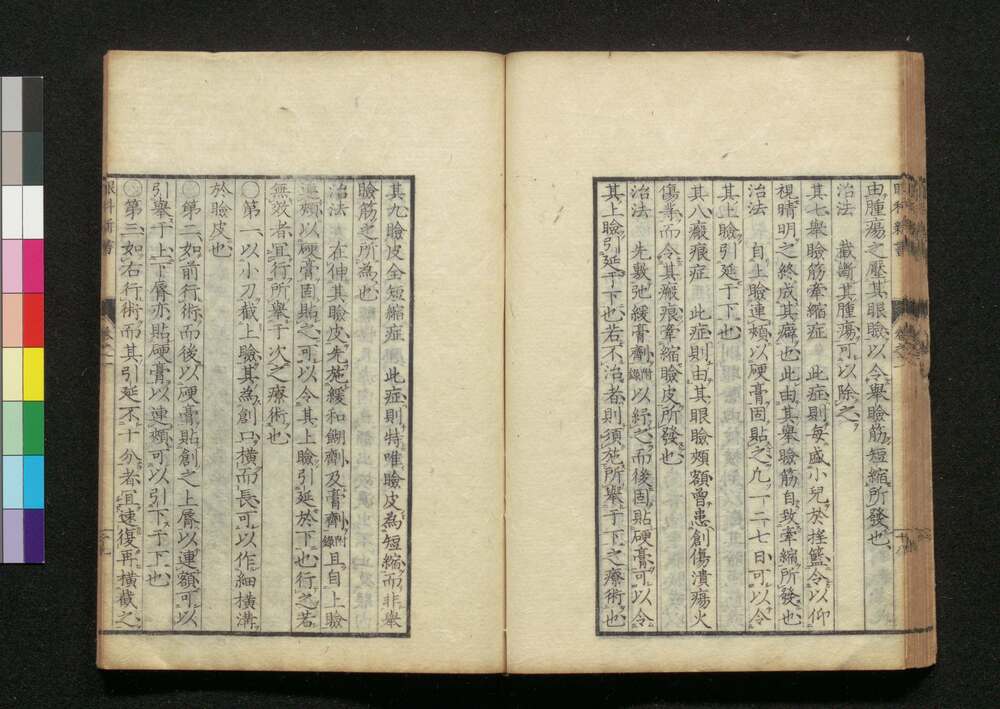 由腫瘍之壓其眼瞼以令舉瞼筋短縮所發也
治法 截斷其腫瘍可以除之
其七舉瞼筋牽縮症 此症則每盛小兒於搖籃令以仰
視晴明之終成其癖也此由其舉瞼筋自致牽縮所發也
治法 自上瞼連頰以硬膏固貼之凡一二七日可以令
其上瞼引延于下也
其八瘢痕症 此症則由其眼瞼頰額曾患創傷潰瘍火
傷等而令其瘢痕牽縮瞼皮所發也
治法 先數弛緩膏劑附錄以紓之而後固貼硬膏可以令
其上瞼引延于下也若不治者則須施所舉于下之療術也
其九瞼皮全短縮症 此症則特唯瞼皮為短縮而非舉
瞼筋之所為也
治法 在伸其瞼皮先施緩和餬劑及膏劑附錄且自上瞼
連頰以硬膏固貼之可以令其上瞼引延於下也行之若
無效者宜行所舉于次之療術也
〇第一以小刀截上瞼其為創口橫而長可以作細橫溝
於瞼皮也
〇第二如前行術而後以硬膏貼創之上脣以連額可以
引舉于上下脣亦貼硬膏以連頰可以引下于下也
〇第三如右行術而其引延不十分者宜速復再橫截之
眼科新書